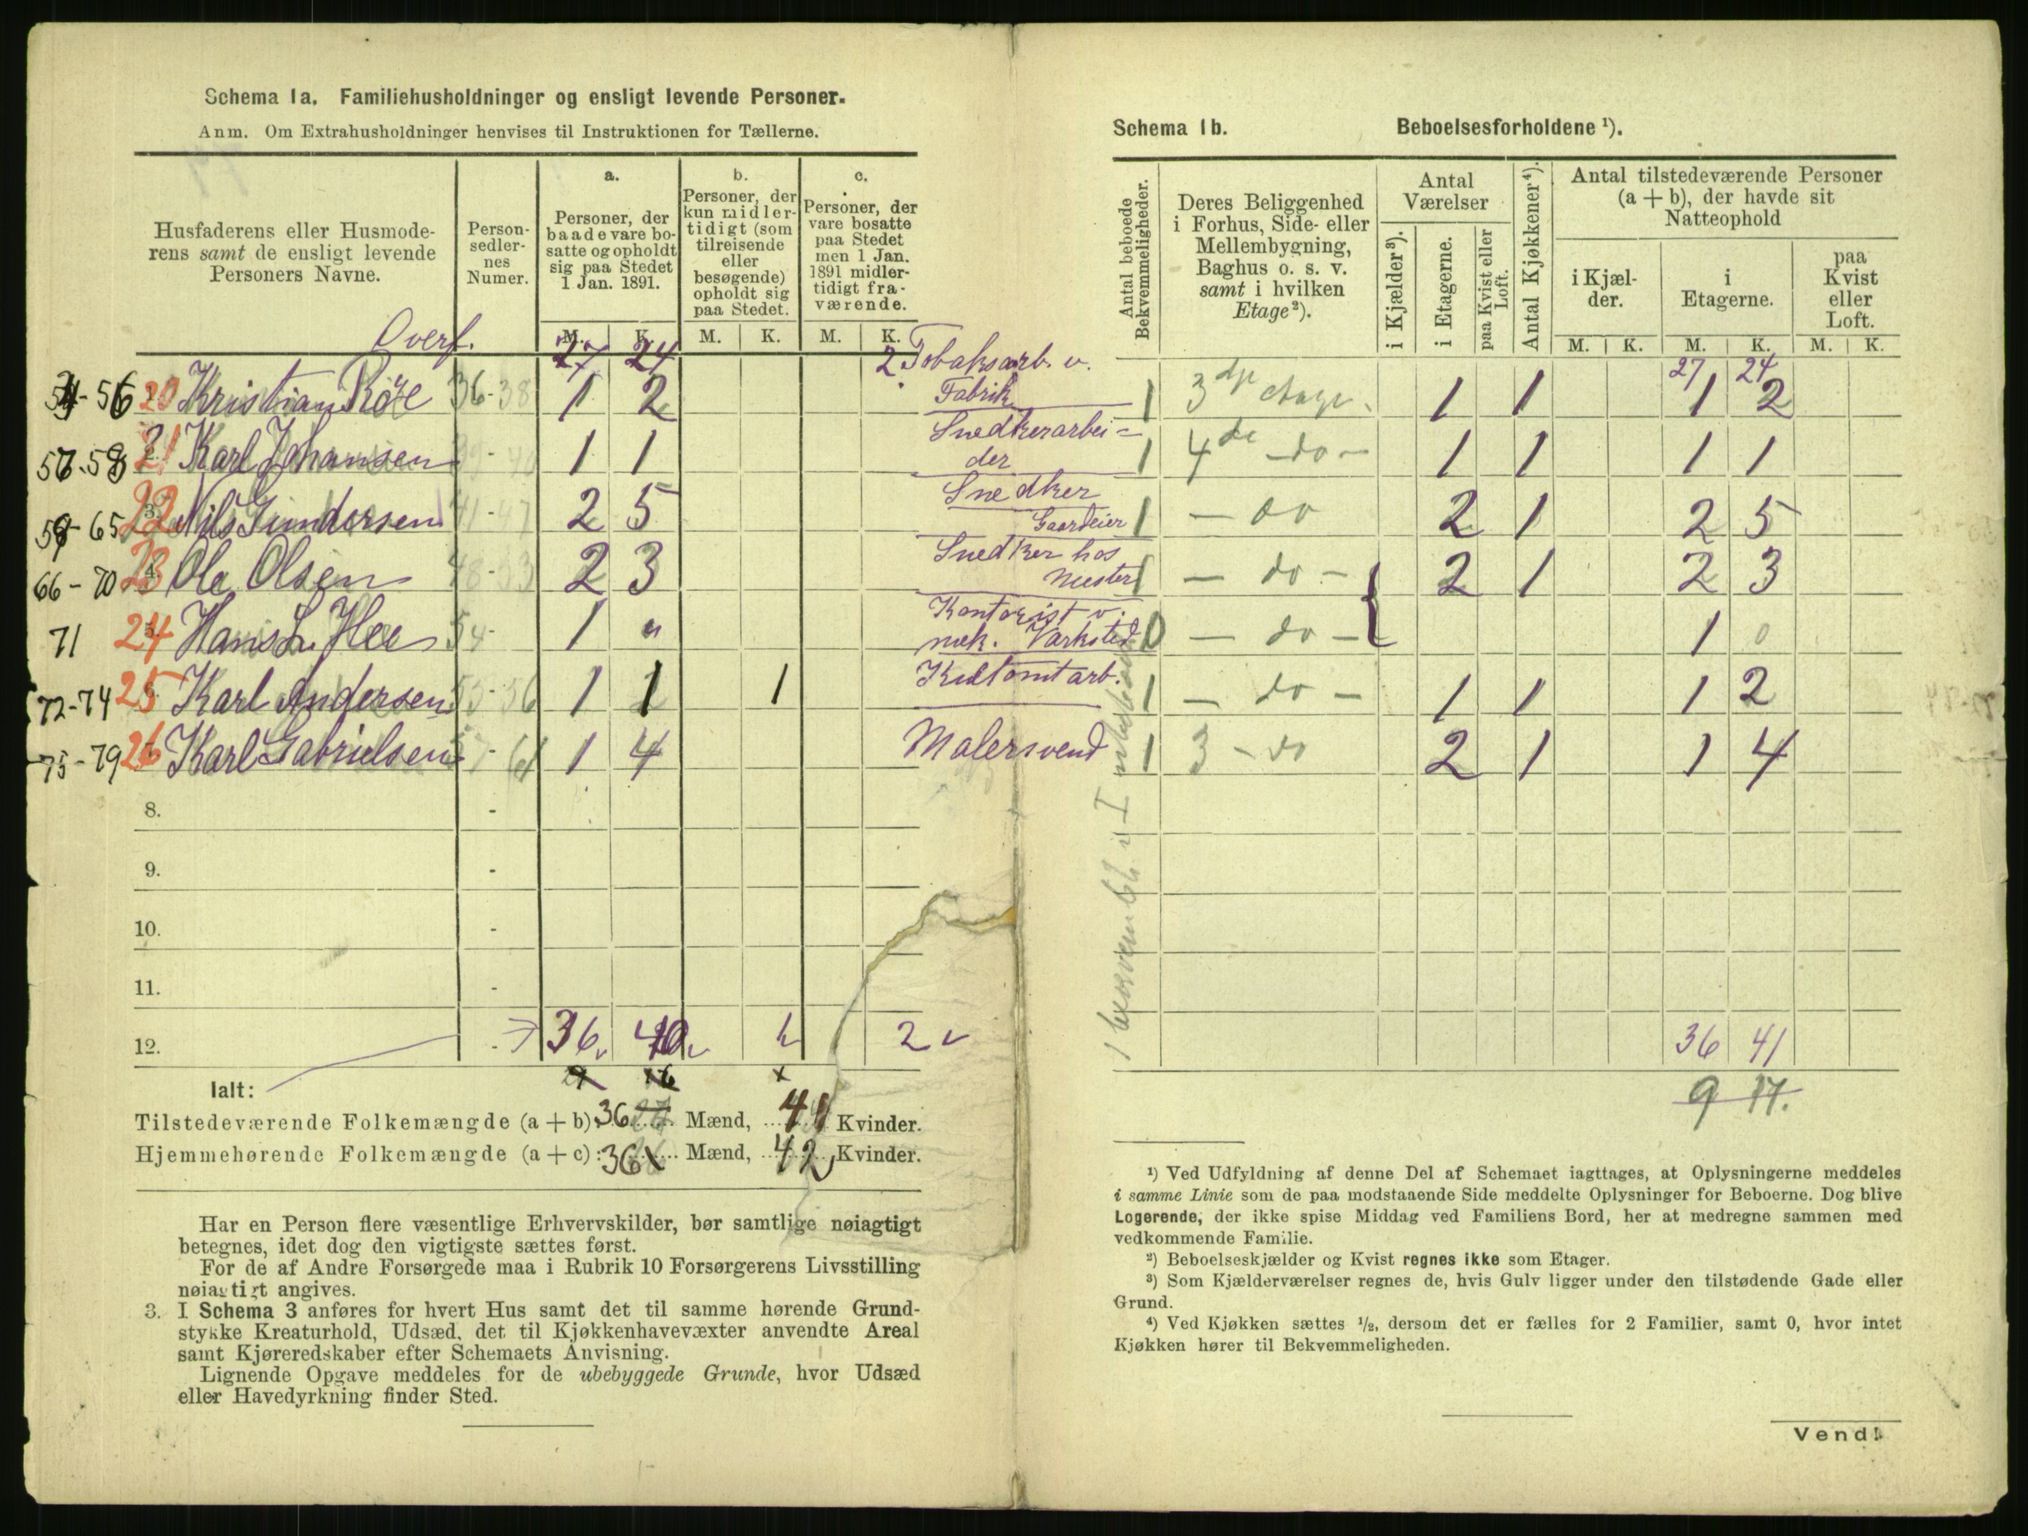 Schema 1a. Familiehusholdninger og ensligt levende Personer.
Anm. Om Extrahusholdninger henvises til Instruktionen for Tællerne.
Husfaderens eller Husmode-
rens samt de ensligt levende
Personers Navne.
Person-
sedler-
nes
Numer.
a.
Personer, der
baade vare bo-
satte og opholdt
sig paa Stedet
1 Jan. 1891.
b.
Personer, der
kun midler-
tidigt (som
tilreisende
eller
besøgende)
opholdt sig
paa Stedet.
c.
Personer, der
vare bosatte
paa Stedet
men 1 Jan.
1891 midler-
tidigt fra-
værende.
M. K. M. K. M. K.
Overf. 27 24 2 Tobaksarb. v.
54-56 20 Kristian Roze 36-38 1 2 Fabrik
57-58 21 2. Karl Johansen 39-40 1 1 Snedkerarbei-
der
59-65 22 3. Nils Gundersen 41-47 2 5 Snedker
Gaardeier
66-70 23 4. Ole Olsen 48-53 2 3 Snedker hos
Mester
71 24 5. Hans L. Hee 54- 1 " Kontorist v.
mek. Værksted
72-74 25 Karl Andersen 55-56 1 1 1 Kultomtarb.
75-79 26 Karl Gabrielsen 57-61 1 4 Malersvend
8. -
9. -
10. -
11. -
12. - 36 40 1 2
Ialt:
Tilstedeværende Folkemængde (a + b): 36 Mænd, 41 Kvinder.
Hjemmehørende Folkemængde (a + c): 36 Mænd, 42 Kvinder.
Har en Person flere væsentlige Erhvervskilder, bør samtlige nøiagtigt
betegnes, idet dog den vigtigste sættes først.
For de af Andre Forsørgede maa i Rubrik 10 Forsørgerens Livsstilling
nøiagtigt angives.
3. I Schema 3 anføres for hvert Hus samt det til samme hørende Grund-
stykke Kreaturhold, Udsæd, det til Kjøkkenhavevæxter anvendte Areal
samt Kjøreredskaber efter Schemaets Anvisning.
Lignende Opgave meddeles for de ubebyggede Grunde, hvor Udsæd
eller Havedyrkning finder Sted.
Schema 1b. Beboelsesforholdene ¹).
Antal beboede
Bekvemmeligheder.
Deres Beliggenhed
i Forhus, Side- eller
Mellembygning,
Baghus o. s. v.
samt i hvilken
Etage²).
Antal
Værelser
i Kjælder³).
i Etagerne.
paa Kvist eller
Loft.
Antal Kjøkkener⁴).
Antal tilstedeværende Personer
(a + b), der havde sit
Natteophold
i Kjæl-
der.
i
Etagerne.
paa
Kvist
eller
Loft.
M. K. M. K. M. K.
27 24
1 3die etage. 1 1 1 2
1 4de -do- 1 1 1 1
1 - do 2 1 2 5
1 - do - 2 1 2 3
0 - do - 1 0
1 - do - 1 1 1 2
1 3 - do 2 1 1 4
36 41
9 17.
¹) Ved Udfyldning af denne Del af Schemaet iagttages, at Oplysningerne meddeles
i samme Linie som de paa modstaaende Side meddelte Oplysninger for Beboerne. Dog blive
Logerende, der ikke spise Middag ved Familiens Bord, her at medregne sammen med
vedkommende Familie.
²) Beboelseskjælder og Kvist regnes ikke som Etager.
³) Som Kjælderværelser regnes de, hvis Gulv ligger under den tilstødende Gade eller
Grund.
⁴) Ved Kjøkken sættes ½, dersom det er fælles for 2 Familier, samt 0, hvor intet
Kjøkken hører til Bekvemmeligheden.
Vend!